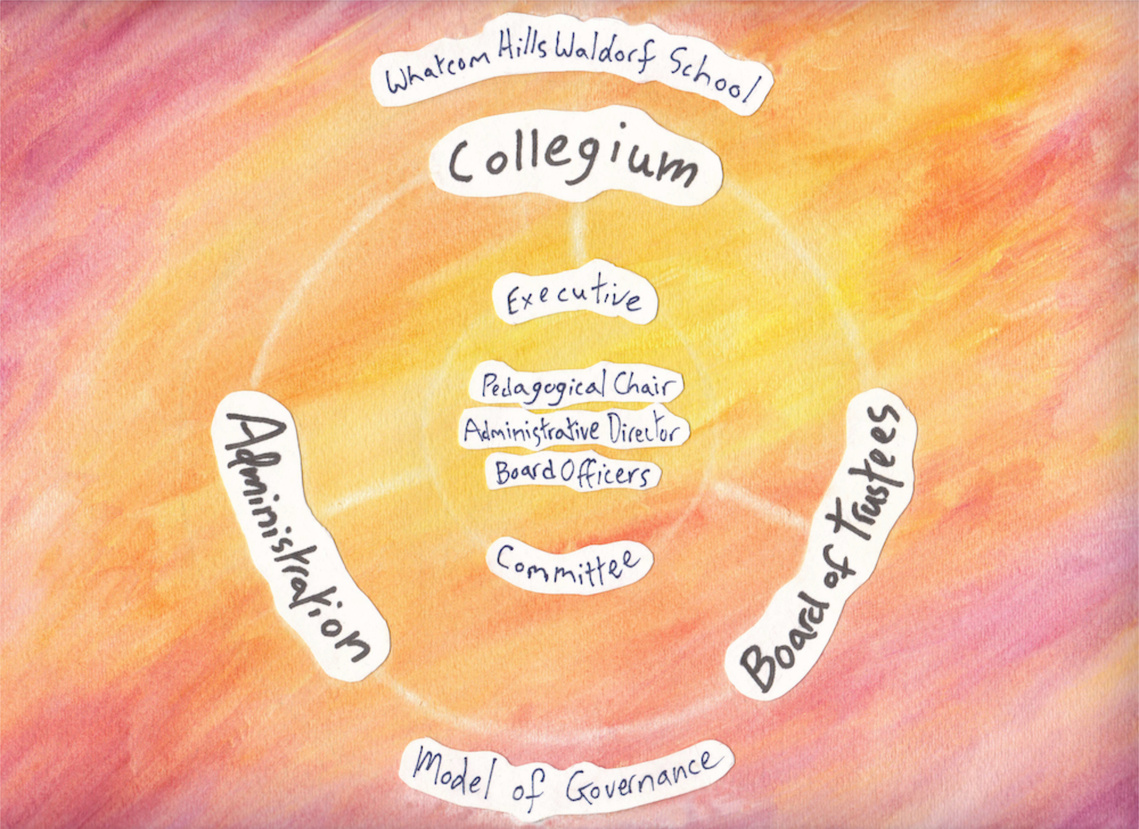 Whatcom Hills Waldorf School
Collegium
Executive
Pedagogical Chair
Administrative Director
Board Officers
Committee
Administration
Board of Trustees
Model of Governance